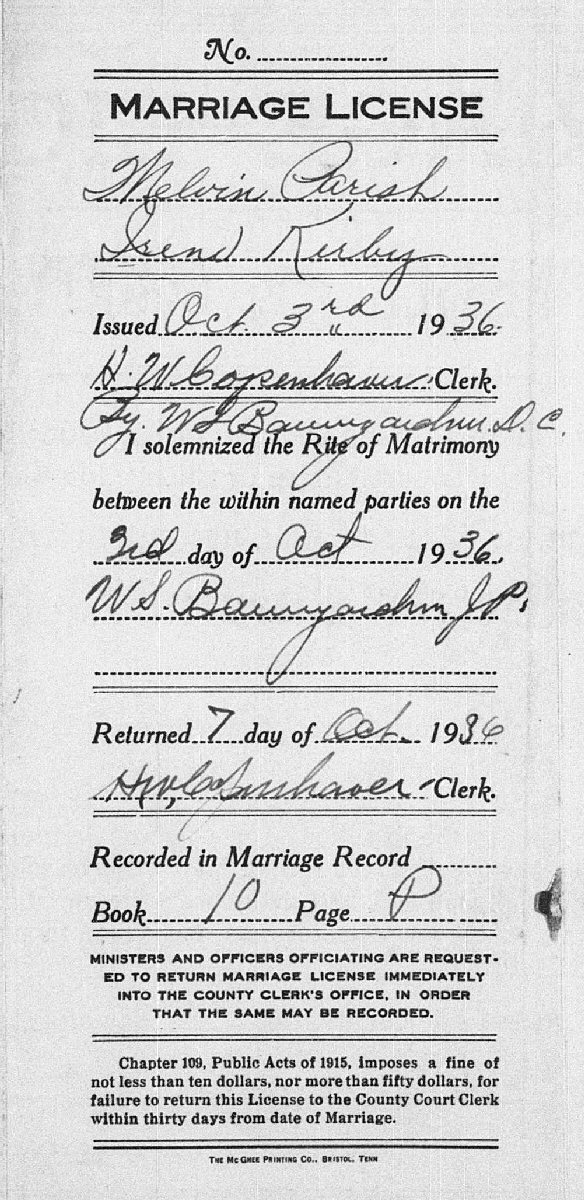 No.
MARRIAGE LICENSE
Melvin Parish
Irene Kirby
Issued Oct. 3rd 1936.
H. W. Copenhaver Clerk.
By. W S Baumgardner D. C.
I solemnized the Rite of Matrimony
between the within named parties on the
3rd day of Oct 1936.
W. S. Baumgardner J.P.
Returned 7 day of Oct. 1936
H W Copenhaver Clerk.
Recorded in Marriage Record
Book 10 Page P
MINISTERS AND OFFICERS OFFICIATING ARE REQUEST-
ED TO RETURN MARRIAGE LICENSE IMMEDIATELY
INTO THE COUNTY CLERK'S OFFICE, IN ORDER
THAT THE SAME MAY BE RECORDED.
Chapter 109, Public Acts of 1915, imposes a fine of
not less than ten dollars, nor more than fifty dollars, for
failure to return this License to the County Court Clerk
within thirty days from date of Marriage.
THE MCGHEE PRINTING CO., BRISTOL, TENN